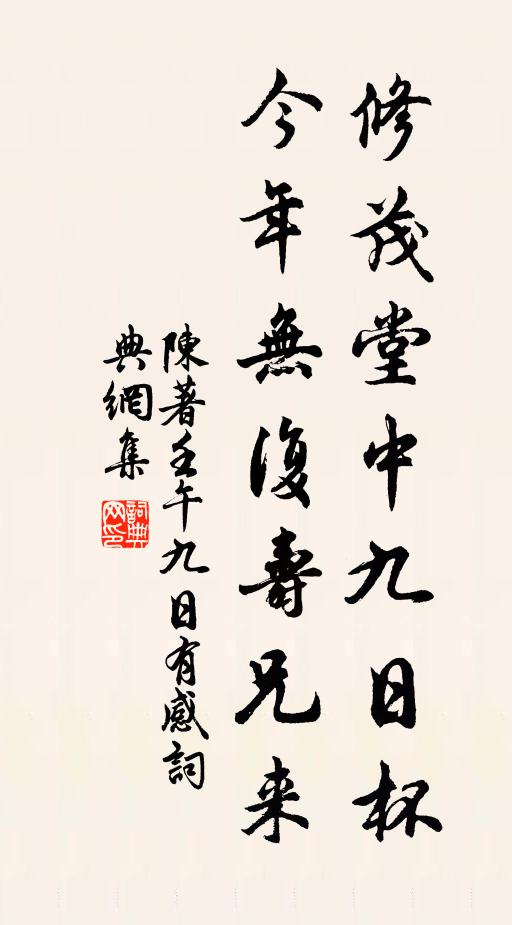 修茂堂中九日杯
今年無復壽兄来
陳著壬午九日有感詞
典網集
詞典网印